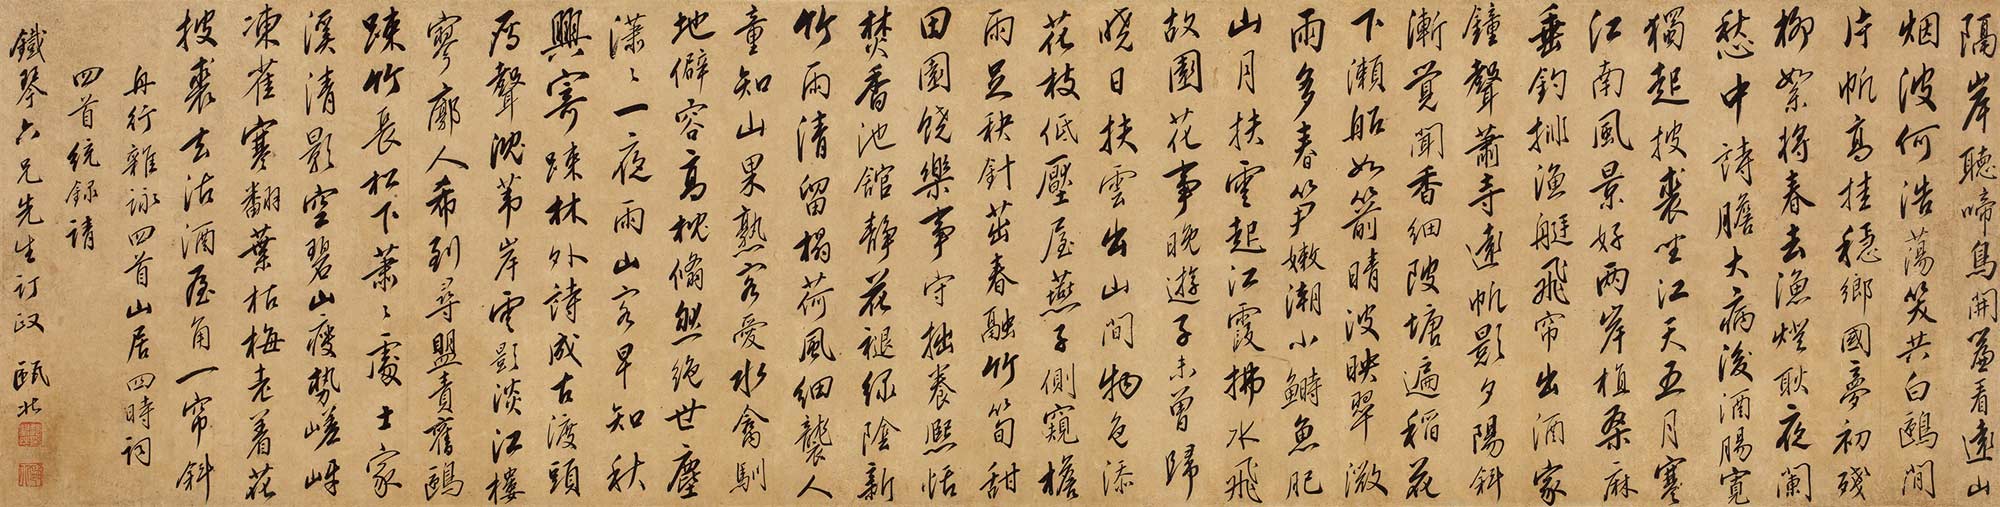 隔岸聴啼鳥開蓬看遠山
烟波何浩蕩笑共白鷗閒
片帆高挂穩鄉國夢初殘
柳絮將春去漁燈耿夜闌
愁中詩膽大病後酒腸寬
獨起披裘坐江天五月寒
江南風景好兩岸植桑麻
垂釣挑漁艇飛帘出酒家
鐘聲蕭寺遠帆影夕陽斜
漸覺聞香細陂塘遍稻花
下瀨船如箭晴波映翠微
雨多春笋嫩潮小鰣魚肥
山月扶雲起江霞拂水飛
故園花事晚遊子未曾歸
曉日扶雲出山間物色添
花枝低壓屋燕子側窺檐
雨足秧針茁春融竹筍甜
田園饒樂事守拙養熙恬
焚香池館靜花褪綠陰新
竹雨清留榻荷風細襲人
童知山果熟客愛水禽馴
地僻容高枕翛然絕世塵
瀟〻一夜雨山客早知秋
興寄踈林外詩成古渡頭
雁聲沈葦岸雲影淡江樓
寥廓人希到尋盟責舊鷗
踈竹長松下蕭〻處士家
溪清影空碧山瘦勢嵯岈
凍雀寒翻葉枯梅老着花
披裘去沽酒屋角一帘斜
舟行雜詠四首山居四時詞
四首統録請
鐵琴六兄先生訂政 甌北